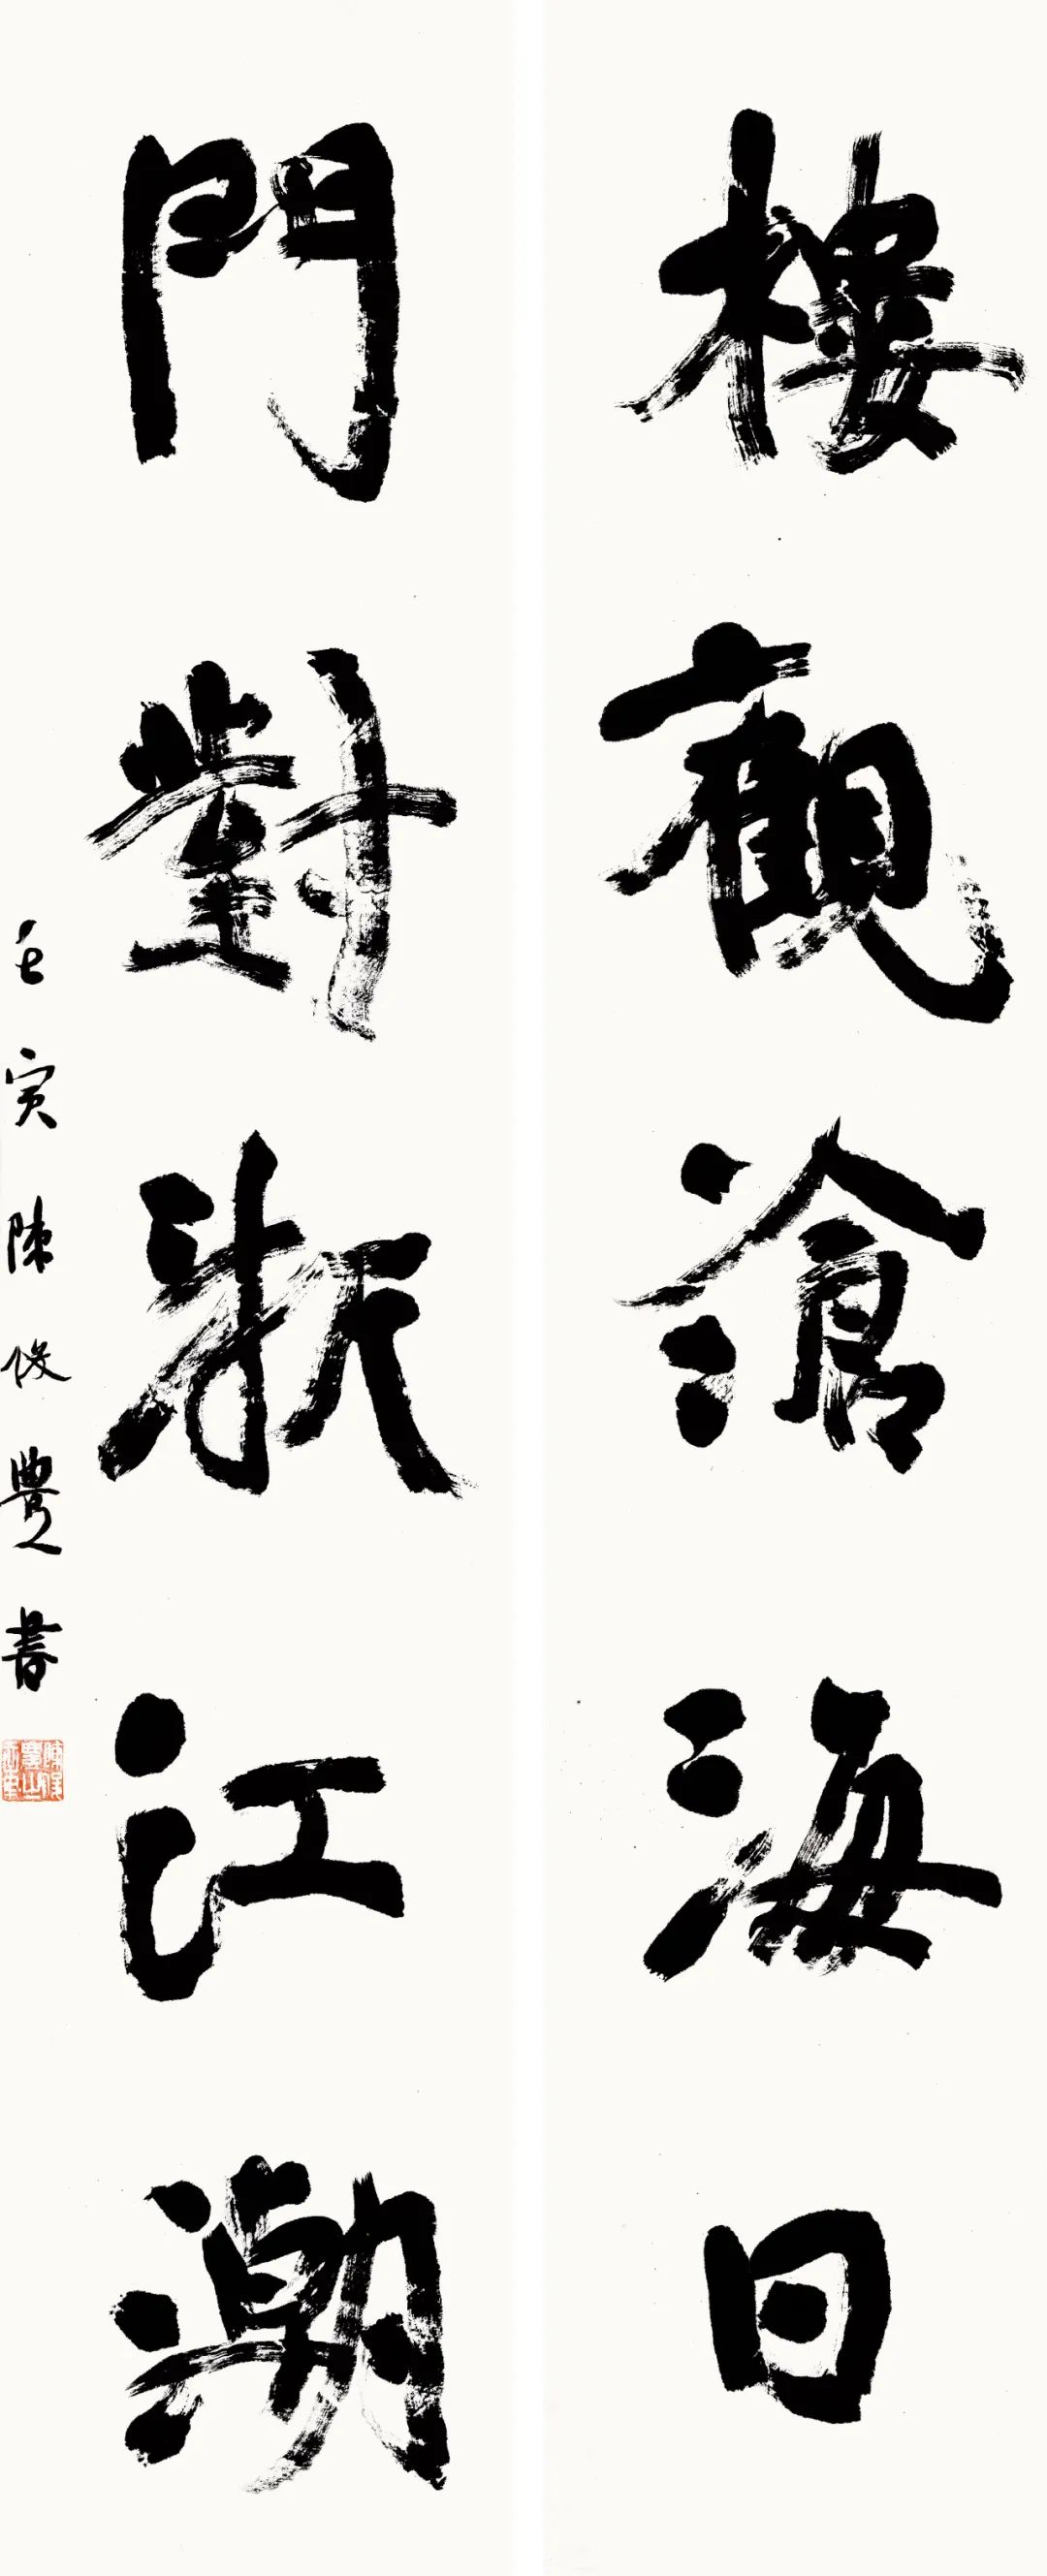 樓觀滄海日
門對浙江潮
壬寅陳俊豊書